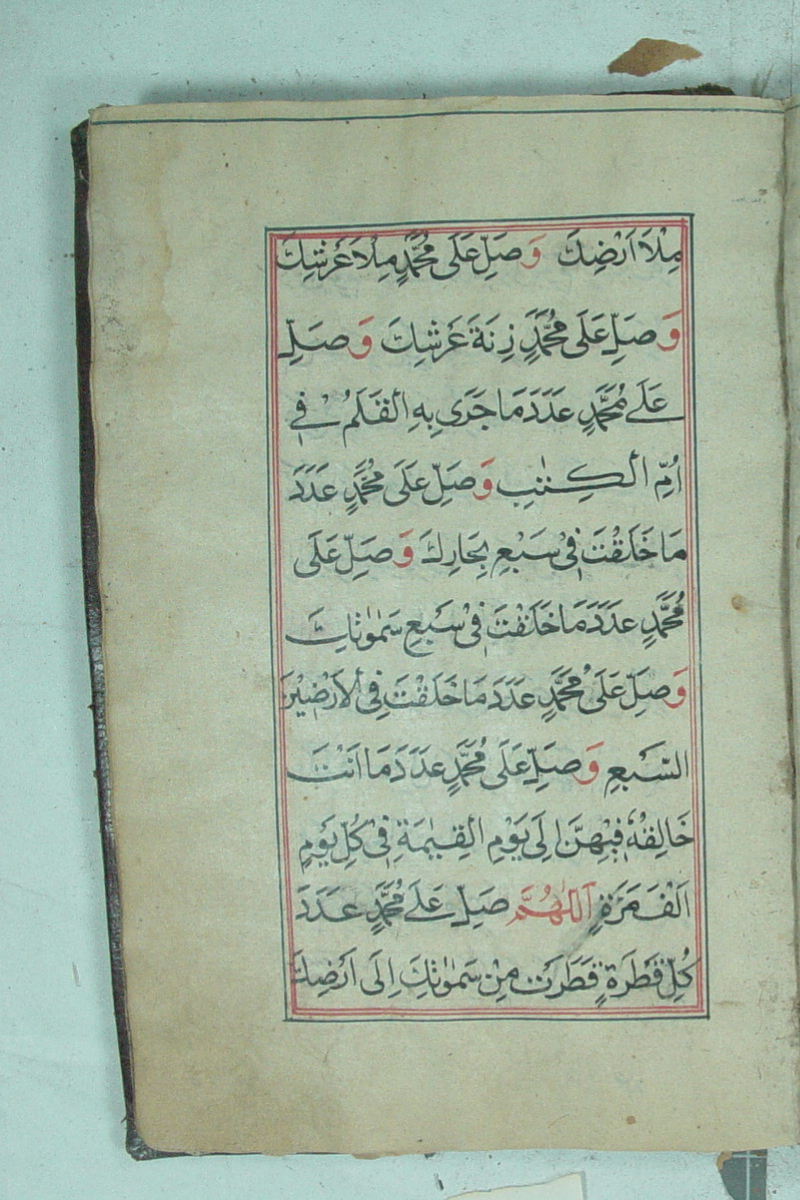 مِلْاَ اَرْضِكَ وَصَلِّ عَلَى مُحَمَّدٍ مِلْاَ عَرْشِكَ
وَصَلِّ عَلَى مُحَمَّدٍ زِنَةَ عَرْشِكَ وَصَلِّ
عَلَى مُحَمَّدٍ عَدَدَ مَا جَرَى بِهِ الْقَلَمُ فِي
اُمِّ الْكِتٰبِ وَصَلِّ عَلَى مُحَمَّدٍ عَدَدَ
مَا خَلَقْتَ فِيْ سَبْعِ بِحَارِكَ وَصَلِّ عَلَى
مُحَمَّدٍ عَدَدَ مَا خَلَقْتَ فِيْ سَبْعِ سَمٰوٰاتِكَ
وَصَلِّ عَلَى مُحَمَّدٍ عَدَدَ مَا خَلَقْتَ فِي الْاَرْضِيْنَ
السَّبْعِ وَصَلِّ عَلَى مُحَمَّدٍ عَدَدَ مَا اَنْتَ
خَالِقُهُ فِيْهِنَّ اِلَى يَوْمِ الْقِيٰمَةِ فِيْ كُلِّ يَوْمٍ
اَلْفَ مَرَّةٍ اَللّٰهُمَّ صَلِّ عَلَى مُحَمَّدٍ عَدَدَ
كُلِّ قَطْرَةٍ قَطَرَتْ مِنْ سَمٰوٰاتِكَ اِلَى اَرْضِكَ